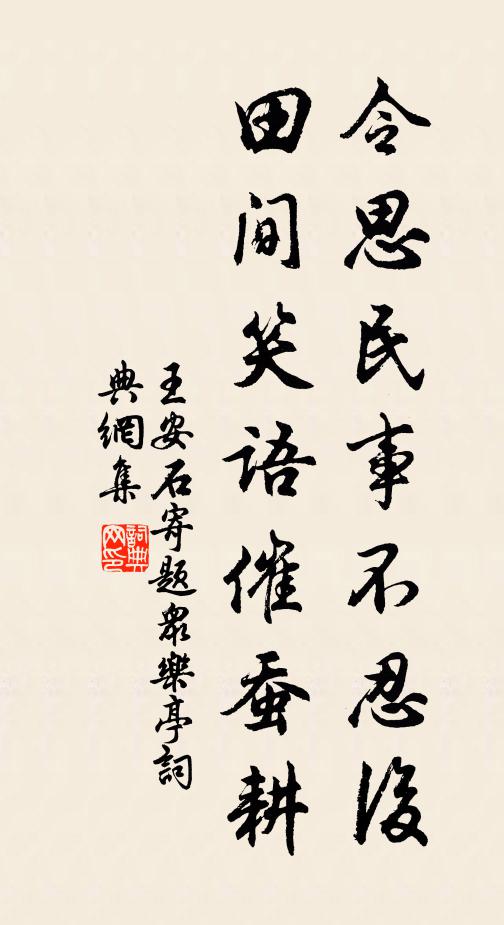 令思民事不忍後
田间笑語催蚕耕
王安石寄題衆樂亭詞
典網集
詞典
网印